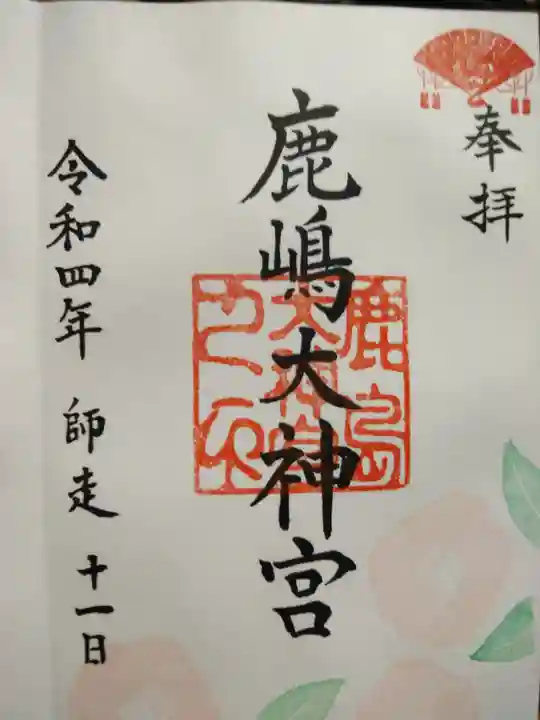 奉拝
鹿嶋大神宮
鹿島
大神宮
之印
令和四年 師走 十一日